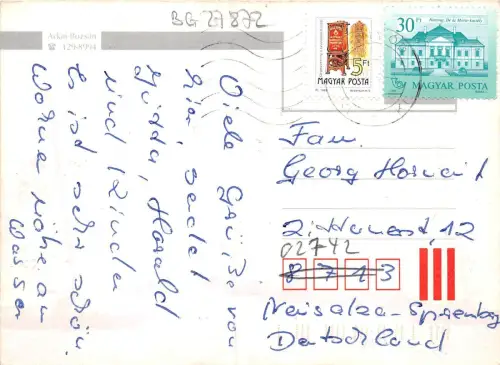 BG 27872
Ackat Bozsán
☎ 129-8994
5Ft
MAGYAR POSTA
30 Ft
MAGYAR POSTA
Viele Grüße von
hier sendet
Jutta, Harald
und Kinder
Es ist sehr schön.
Wohnen nähe am
Wasser
Fam.
Georg
Zittauerst. 12
02742
8713
Neisalza-Spremberg
Deutschland